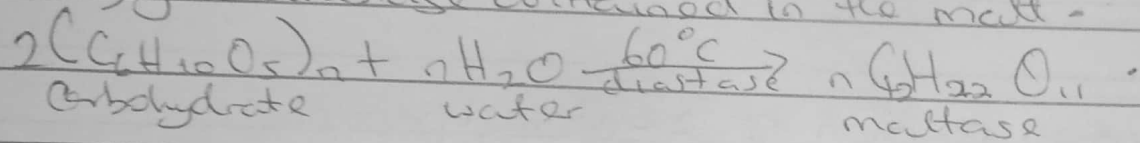 contained in the malt -
2(C₆H₁₀O₅)ₙ + nH₂O 60°C diastase → nC₁₂H₂₂O₁₁.
Carbohydrate water maltase